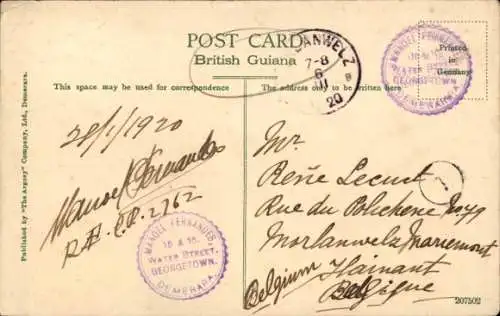 POST CARD
British Guiana
This space may be used for correspondence
The address only to be written here
Printed
in
Germany
MANOEL FERNANDES,
15 & 16,
WATER STREET,
GEORGETOWN.
DEMERARA.
7-8
6
II
20
28/1/1920
Manoel Fernandes
MANOEL FERNANDES,
15 & 16,
WATER STREET,
GEORGETOWN.
DEMERARA.
Mr
René Lecuct
Rue du Polichene No 49
Morlanwelz Mariemont
Belgium Hainant
Belgique
207502
Published by "The Argosy" Company, Ltd., Demerara.